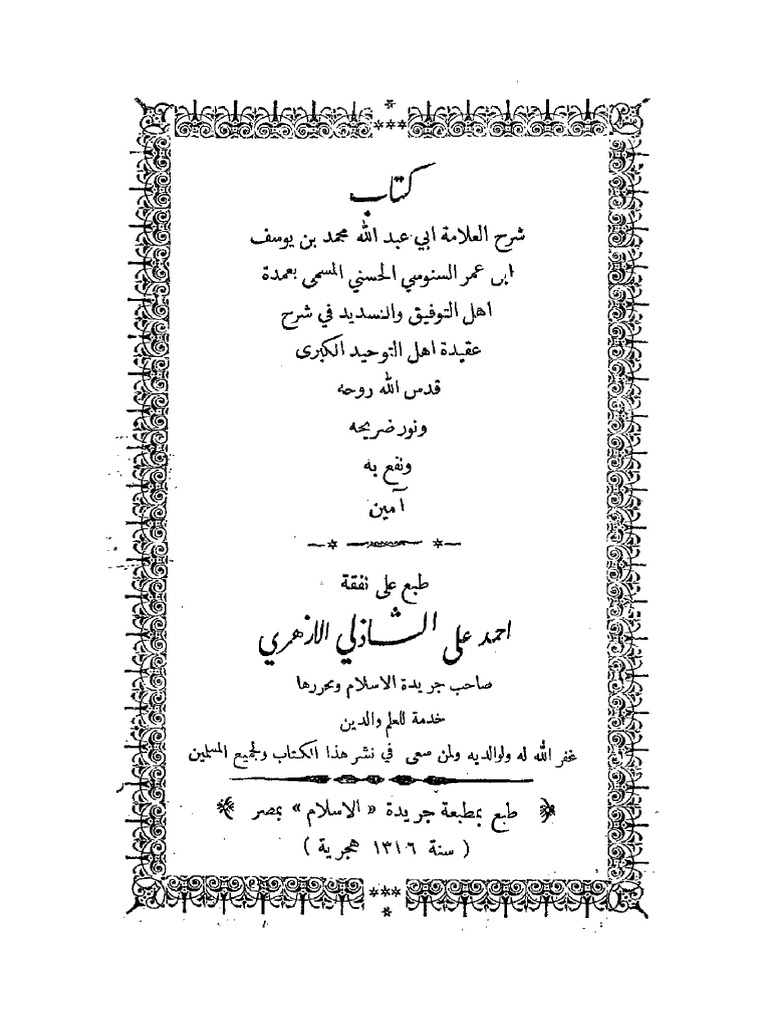 كتاب
شرح العلامة ابي عبد الله محمد بن يوسف
ابن عمر السنوسي الحسني المسمى بعمدة
اهل التوفيق والتسديد في شرح
عقيدة اهل التوحيد الكبرى
قدس الله روحه
ونور ضريحه
ونفع به
آمين
طبع على نفقة
احمد على الشاذلي الازهري
صاحب جريدة الاسلام ومحررها
خدمة للعلم والدين
غفر الله له ولوالديه ولمن سعى في نشر هذا الكتاب ولجميع المسلمين
طبع بمطبعة جريدة «الاسلام» بمصر
( سنة ١٣١٦ هجرية )